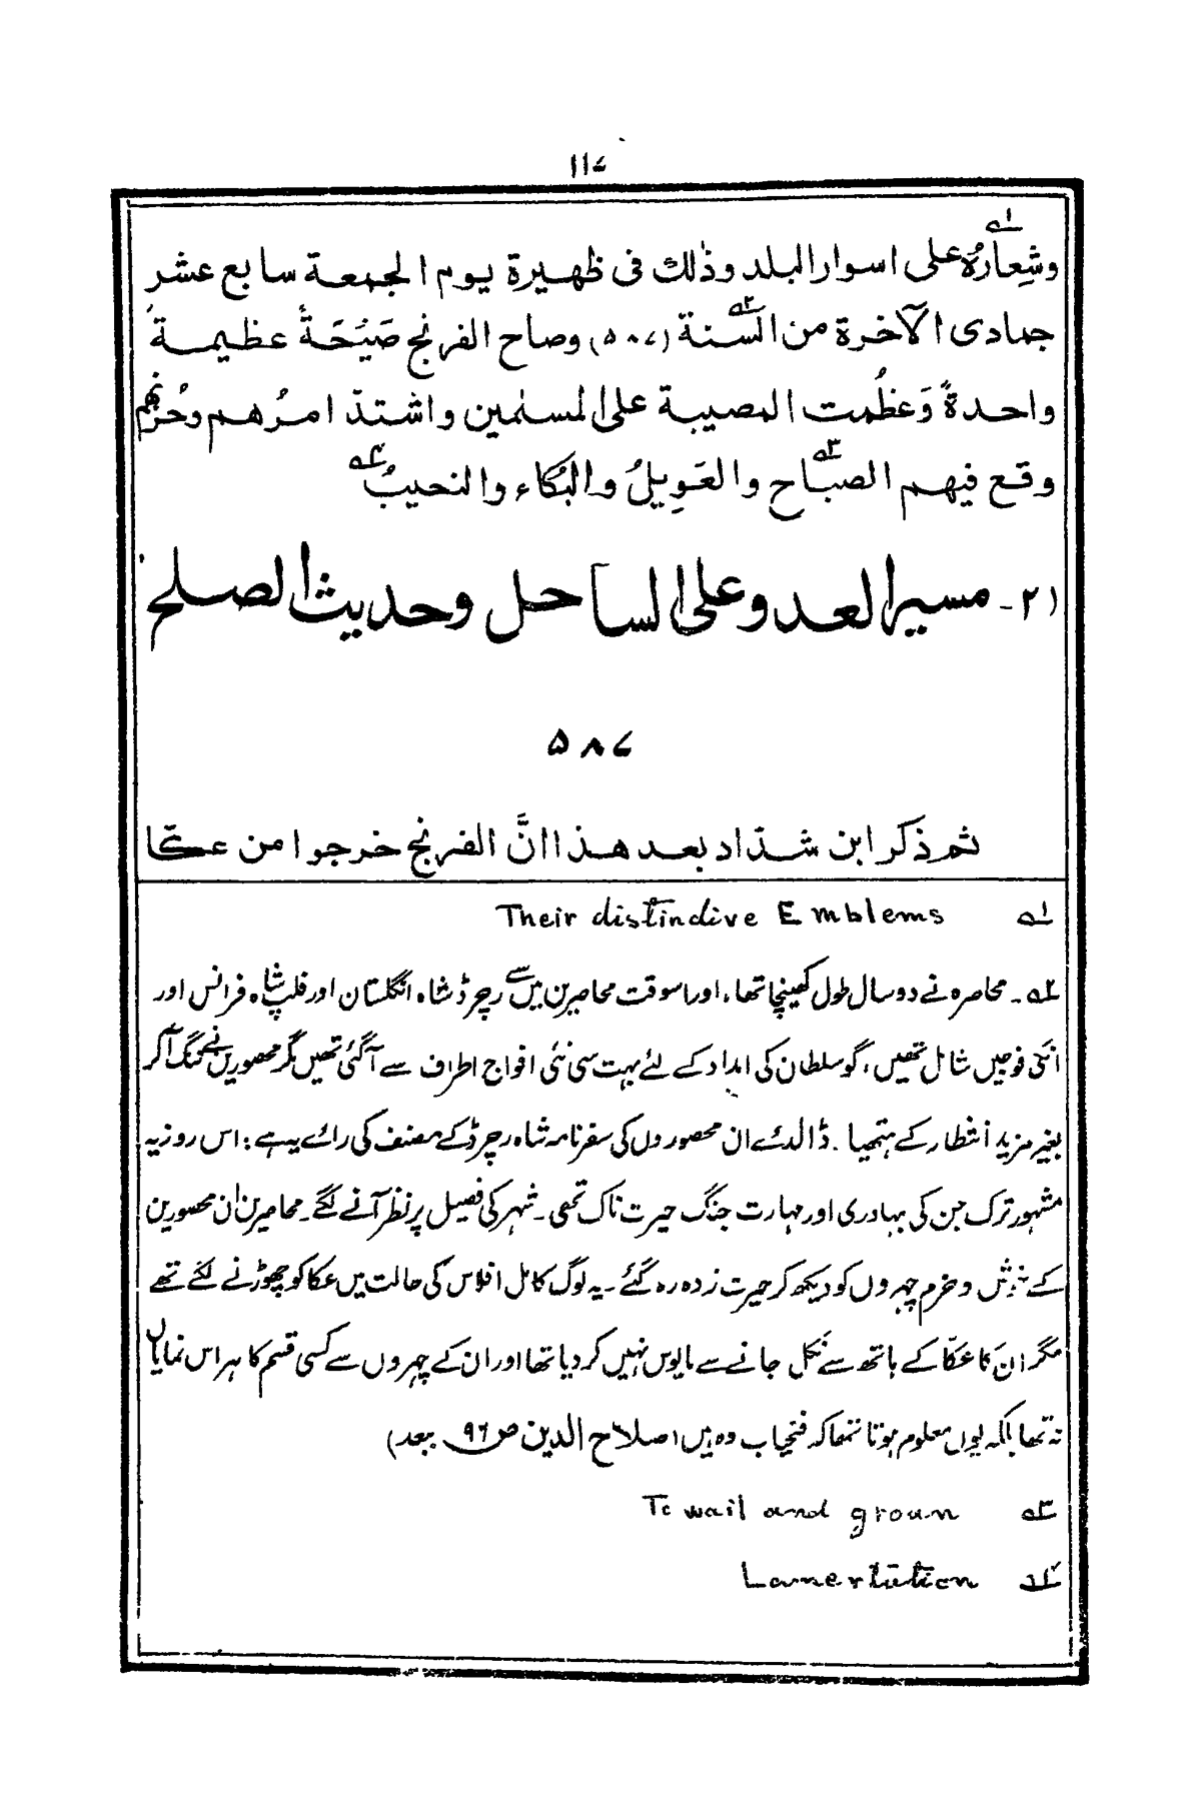 ۱۱۷
وشِعارُہ۱؎ علی اسوار البلد وذٰلك فی ظهیرة یوم الجمعة سابع عشر
جمادی الآخرة من السنة۲؎ (۵۸۷) وصاح الفرنج صَیْحَةً عظیمةً
واحدةً وَعظُمت المصیبة علی المسلمین واشتدّ امرُهم وحُزنهم
وقع فیهم الصباح۳؎ والعَوِیلُ والبُكاء والنحیبُ۴؎
۲۱- مسیر العدو علی الساحل وحدیث الصلح
۵۸۷
ثم ذكر ابن شدّاد بعد هذا انَّ الفرنج خرجوا من عكّا
۱؎ Their distindive Emblems
۲؎ - محاصرہ نے دو سال طول کھینچا تھا، اور اسوقت محاصرین میں سے رچرڈ شاہ انگلستان اور فلپ شاہ فرانس اور
انکی فوجیں شامل تھیں، گو سلطان کی امداد کے لئے بہت سی نئی افواج اطراف سے آگئی تھیں مگر محصورین نے تنگ آکر
بغیر مزید انتظار کے ہتھیا . ڈالدئے ان محصوروں کی سفرنامہ شاہ رچرڈ کے مصنف کی رائے یہ ہے : اس روز یہ
مشہور ترک جن کی بہادری اور مہارت جنگ حیرت ناک تھی ۔ شہر کی فصیل پر نظر آنے لگے ۔ محاصرین ان محصورین
کے خوش و خرم چہروں کو دیکھ کر حیرت زدہ رہ گئے ۔ یہ لوگ کامل افلاس کی حالت میں عکا کو چھوڑنے لگے تھے
مگر ان کا عکّا کے ہاتھ سے نکل جانے سے مایوس نہیں کر دیا تھا اور ان کے چہروں سے کسی قسم کا ہراس نمایاں
نہ تھا بلکہ یوں معلوم ہوتا تھا کہ فتحیاب وہ ہیں (صلاح الدین ص ۹۶ ببعد)
۳؎ To wail and groun
۴؎ Lamertution